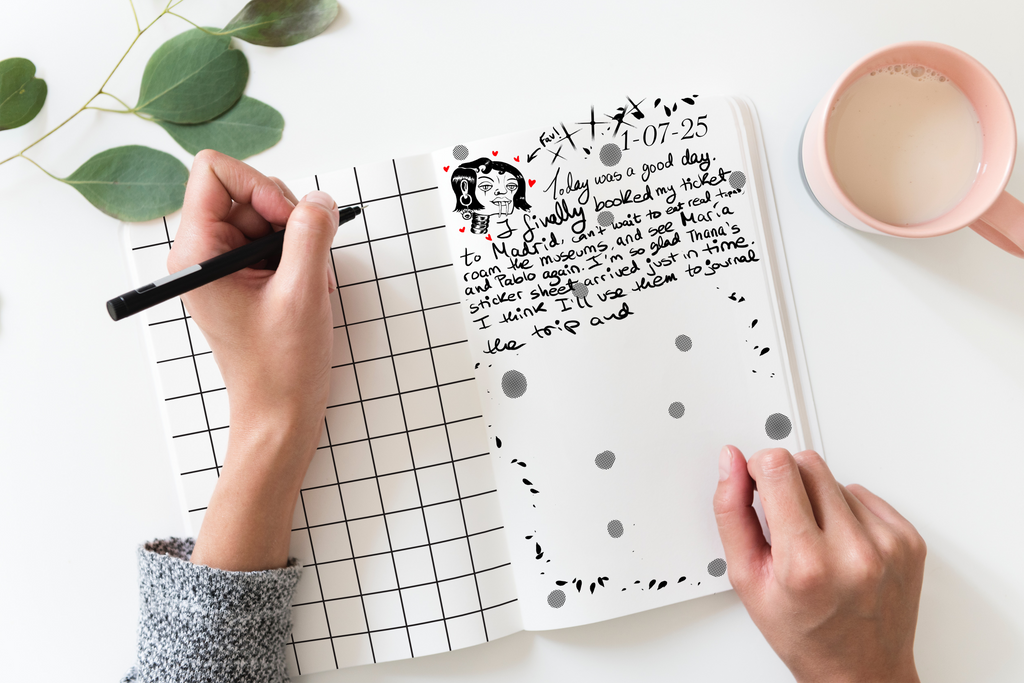 FAV!
1-07-25
Today was a good day.
I finally booked my ticket
to Madrid, can't wait to eat real tapas
roam the museums, and see María
and Pablo again. I'm so glad Thana's
sticker sheet arrived just in time.
I think I'll use them to journal
the trip and